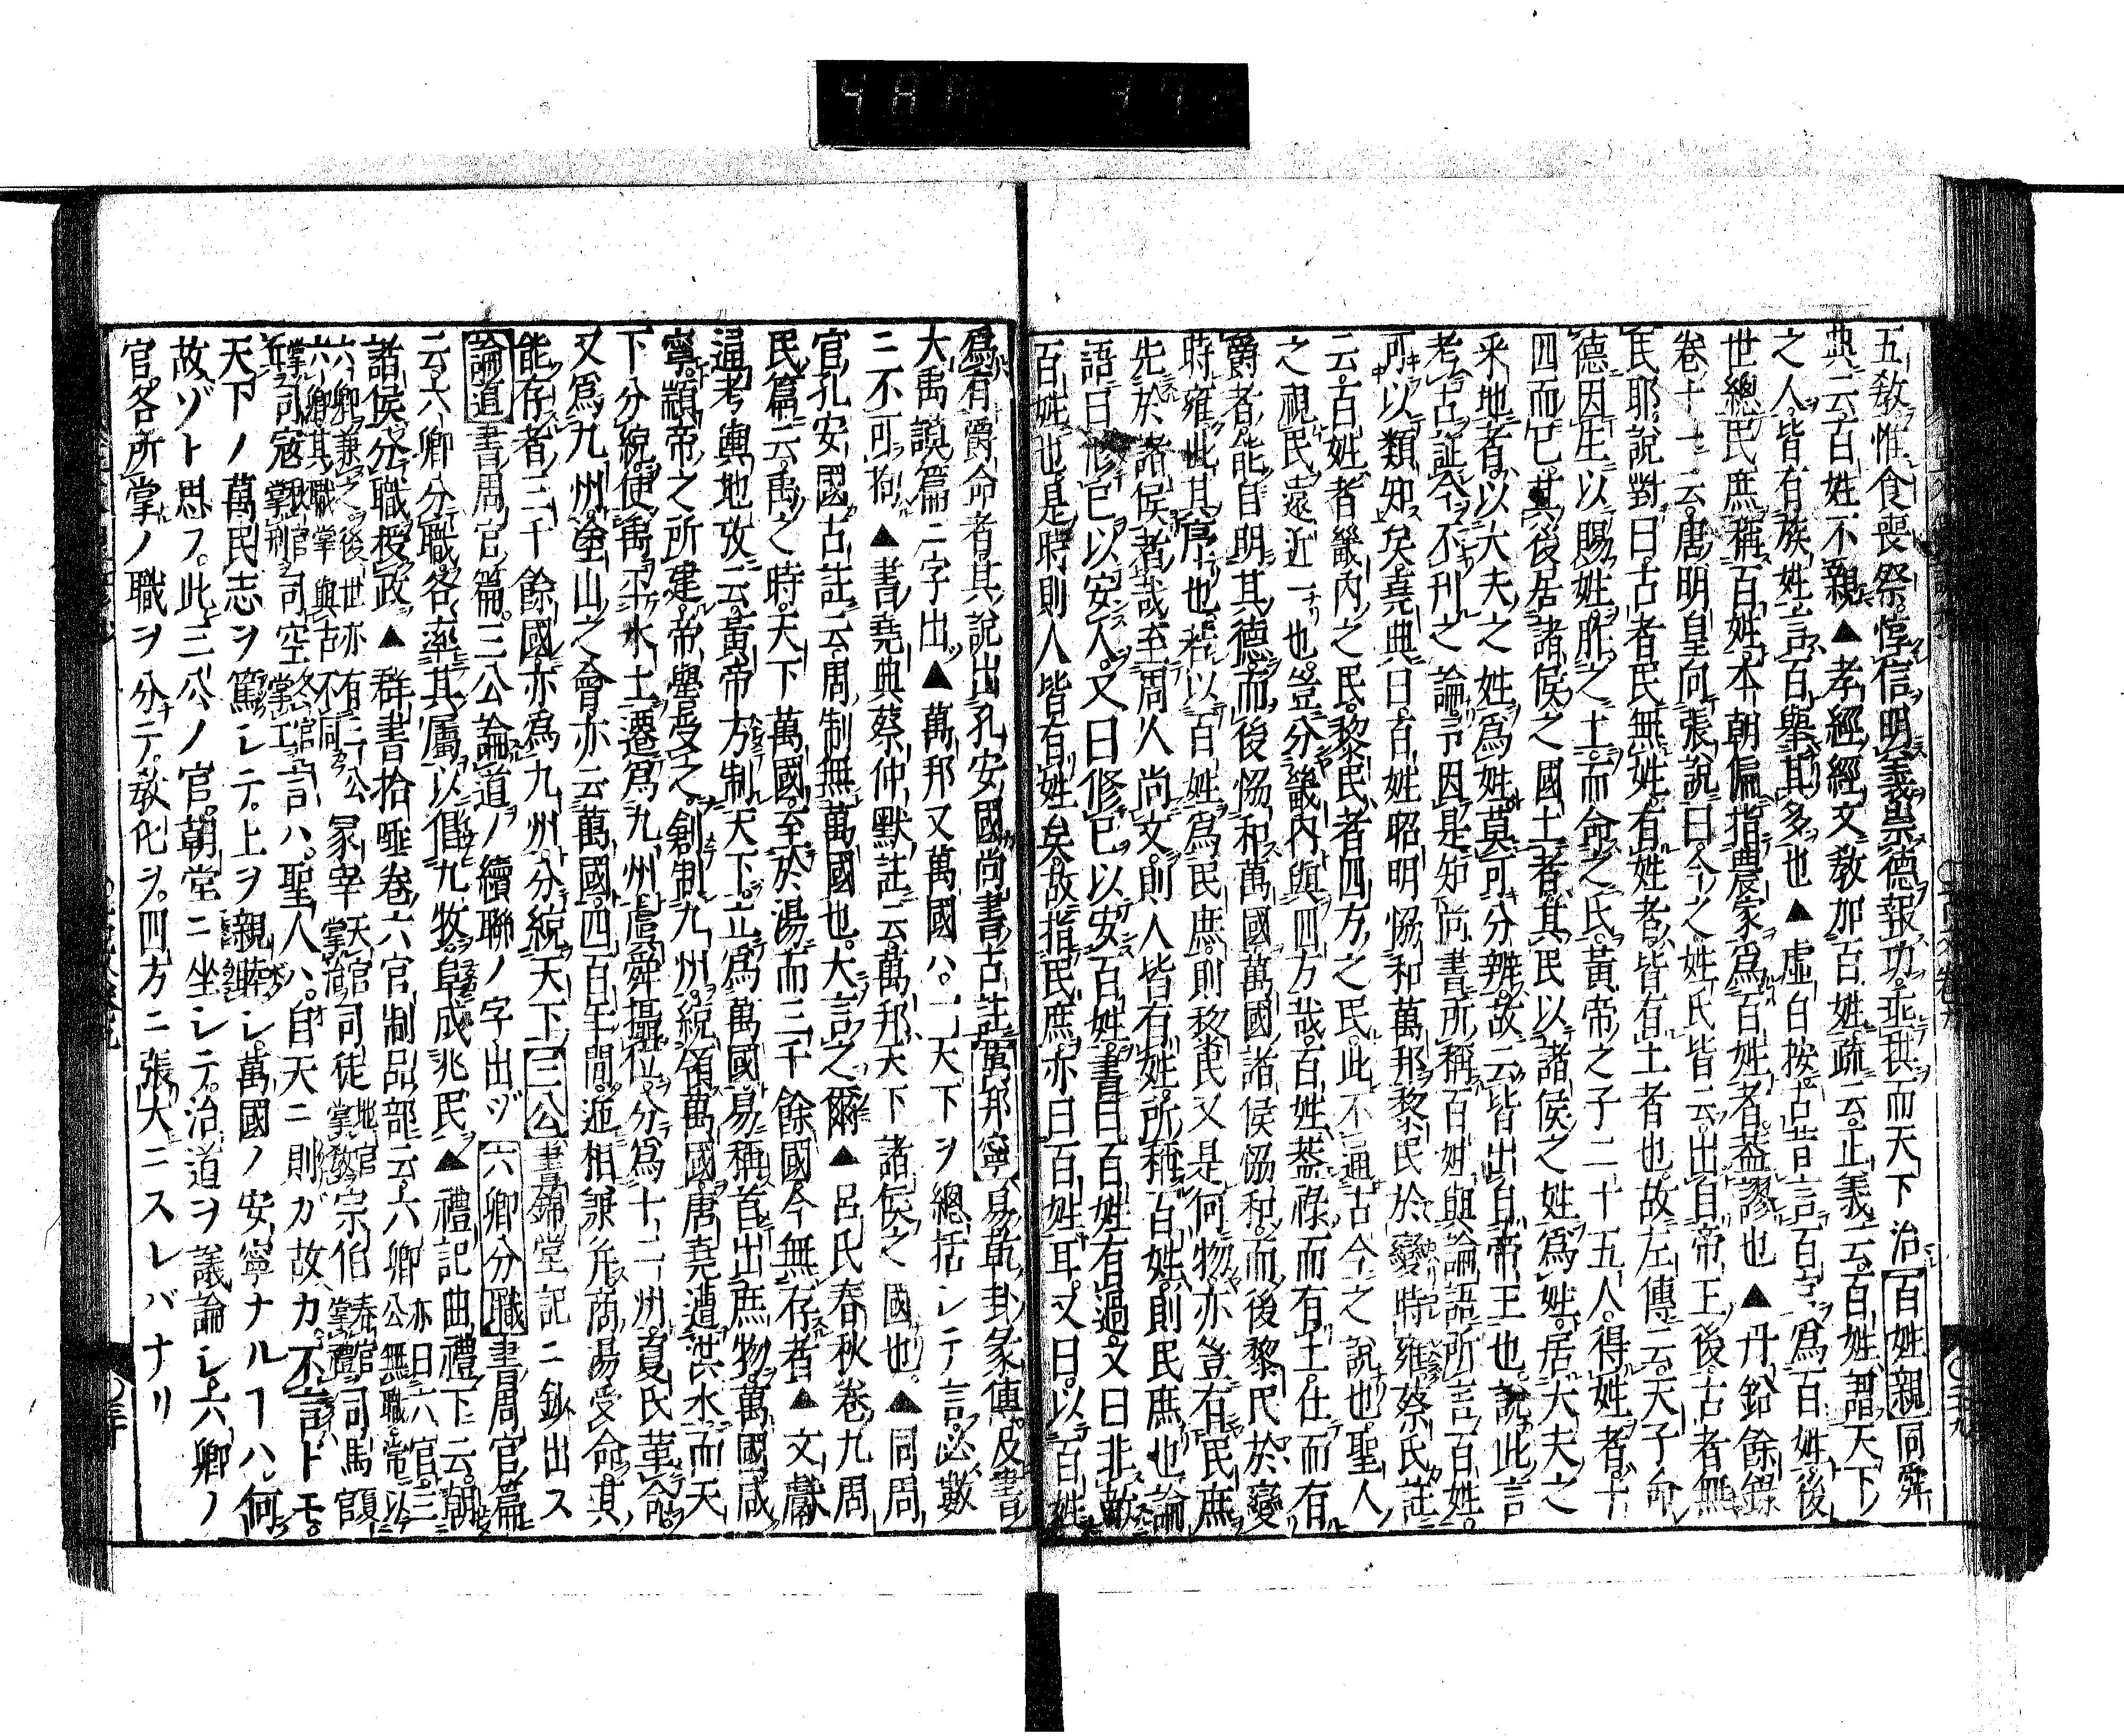 五敎惟食喪祭惇信明義崇德報功垂拱而天下治百姓親同舜
典云百姓不親▲孝經經文敎加百姓疏云正義云百姓謂天下
之人皆有族姓言百舉其多也▲虛白按古昔言百官爲百姓後
世總民庶稱百姓本朝偏指農家爲百姓者蓋謬也▲丹鉛餘錄
卷十一云唐明皇向張說曰今之姓氏皆云出自帝王後古者無
民耶說對曰古者民無姓有姓者皆有土者也故左傳云天子命
德因生以賜姓胙之土而命之氏黃帝之子二十五人得姓者十
四而已其後居諸侯之國土者其民以諸侯之姓爲姓居大夫之
采地者以大夫之姓爲姓莫可分辨故云皆出自帝王也說此言
考古証今不刊之論予因是知尚書所稱百姓與論語所言百姓
可以類知矣堯典曰百姓昭明恊和萬邦黎民於變時雍蔡氏註
云百姓者畿內之民黎民者四方之民此不通古今之說也聖人
之視民遠近一也豈分畿內與四方哉百姓蓋祿而有土仕而有
爵者能自明其德而後恊和萬國萬國諸侯恊和而後黎民於變
時雍此其序也若以百姓爲民庶則黎民又是何物亦豈有民庶
先於諸侯者哉至周人尚文則人皆有姓所稱百姓則民庶也論
語曰修己以安人又曰修己以安百姓書曰百姓有過又曰非敵
百姓也是時則人皆有姓矣故指民庶亦曰百姓耳又曰以百姓
爲有爵命者其說出孔安國尚書古註萬邦寧易乾卦彖傳及書
大禹謨篇ニ字出▲萬邦又萬國ハ一天下ヲ總括シテ言必數
ニ不可拘▲書堯典蔡仲默註云萬邦天下諸侯之國也▲同周
官孔安國古註云周制無萬國也大言之爾▲呂氏春秋卷九周
民篇云禹之時天下萬國至於湯而三千餘國今無存者▲文獻
通考輿地攷云黃帝方制天下立爲萬國易稱首出庶物萬國咸
寧顓帝之所建帝嚳受之創制九州統領萬國唐堯遭洪水而天
下分絕使禹平水土還爲九州虞舜攝位分爲十二州夏氏革命
又爲九州塗山之會亦云萬國四百年間遞相兼并商湯受命其
能存者三千餘國亦爲九州分統天下三公書錦堂記ニ鈔出ス
論道書周官篇三公論道ノ續聯ノ字出ヅ六卿分職書周官篇
云六卿分職各率其屬以倡九牧阜成兆民▲禮記曲禮下云朝
諸侯分職授政▲群書拾唾卷六官制品部云六卿亦曰六官三公無職常以
六卿兼之後世亦有三公六卿其職掌與古不同冢宰天官掌治司徒地官掌敎宗伯春官掌禮司馬夏官
掌兵司寇秋官掌刑司空冬官掌工言ハ聖人ハ自天ニ則ガ故カ不言ドモ
天下ノ萬民志ヲ篤シテ上ヲ親睦シ萬國ノ安寧ナルヿハ何
故ゾト思フ此三公ノ官朝堂ニ坐シテ治道ヲ議論シ六卿ノ
官各所掌ノ職ヲ分テ敎化ヲ四方ニ張大ニスレバナリ